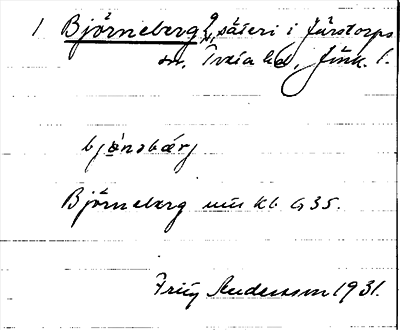 1 Björneberg, säteri i Järstorps
sn. Tveta hd, Jönk. l.
bjǿnsbærj
Björneberg mtl Kb G35.
Fritz Andersson 1931.